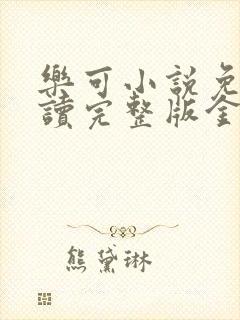 樂可小說免
讀完整版全
熊黛琳